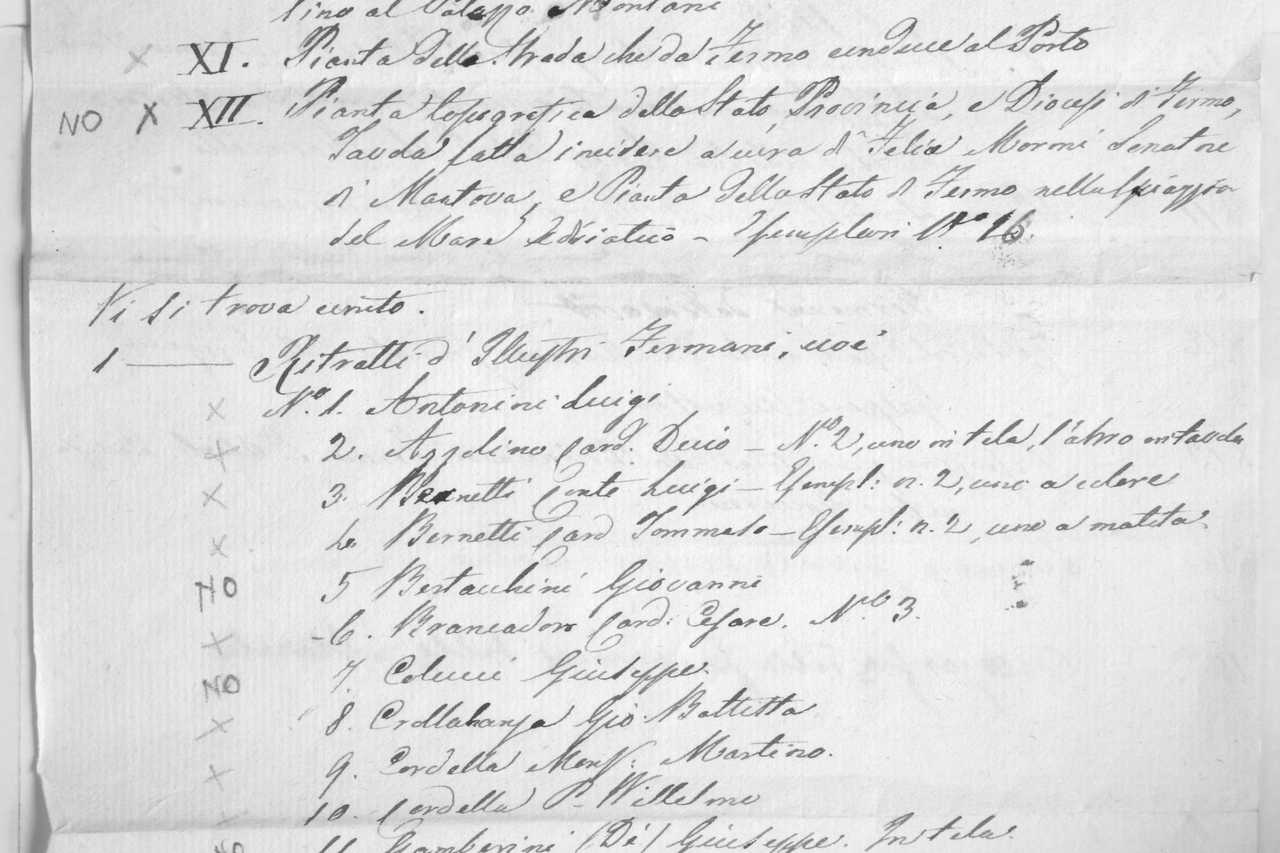 tino al Palazzo Montani
X XI. Pianta della Strada che da Fermo conduce al Porto
NO X XII. Pianta topografica dello Stato, Provincia, e Diocesi di Fermo,
Tavola fatta incidere a cura di Felice Moroni Senatore
di Mantova, e Pianta dello Stato di Fermo nella Spiaggia
del Mare Adriatico – Esemplari N.o 16
Vi si trova unito.
1 — Ritratti d'Illustri Fermani, cioè
X N.o 1. Antonini Luigi
X 2. Azzolino Card. Decio – N.o 2, uno in tela, l'altro in tavola
X 3. Bernetti Conte Luigi – Esempl: n. 2, uno a colore
X 4. Bernetti Card Tommaso – Esempl: n. 2, uno a matita
NO 5 Bertacchini Giovanni
X -6. Brancadoro Card: Cesare. N.o 3.
NO 7. Colucci Giuseppe.
X 8. Crollalanza Gio Battista
X 9. Cordella Mons: Martino.
10. Cordella P. Willelmo
11. Gamberini (De) Giuseppe. In tela.